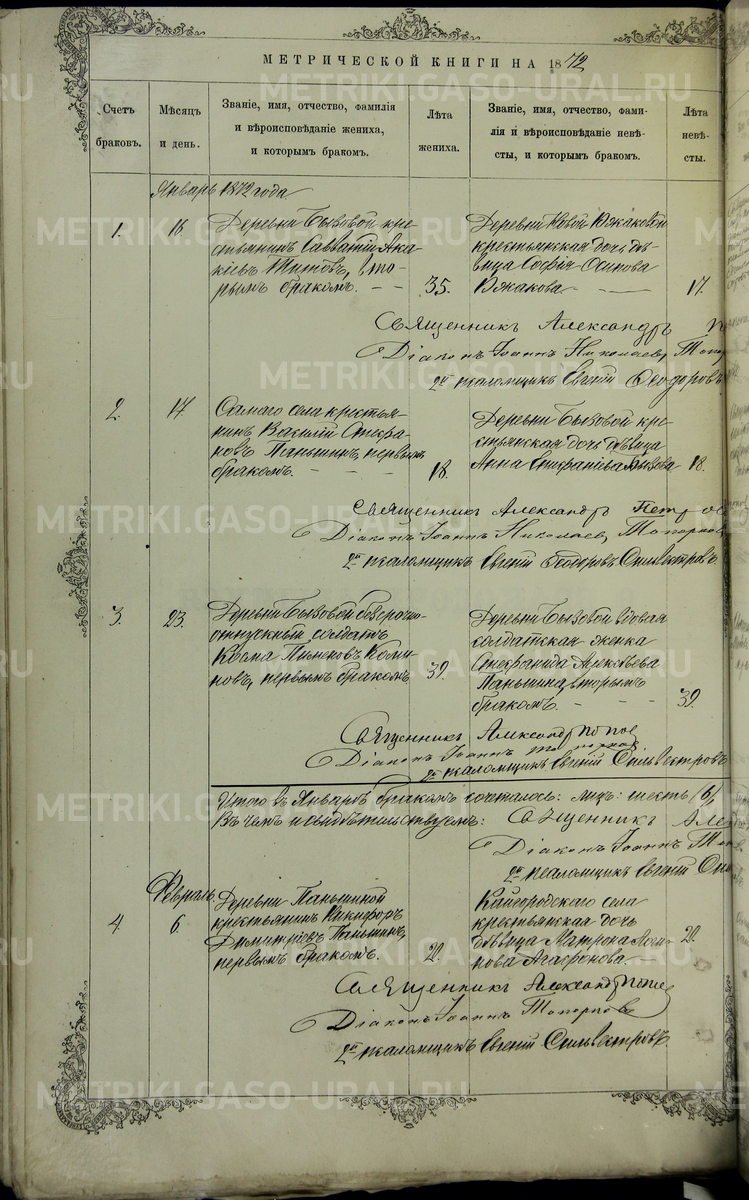 МЕТРИЧЕСКОЙ КНИГИ НА 1872
Счетъ браковъ.
Мѣсяцъ и день.
Званіе, имя, отчество, фамилія и вѣроисповѣданіе жениха, и которымъ бракомъ.
Лѣта жениха.
Званіе, имя, отчество, фамилія и вѣроисповѣданіе невѣсты, и которымъ бракомъ.
Лѣта невѣсты.
Январь 1872 года
1. 16
Деревни Бызовой кре-
стьянинъ Савватій Ака-
кіевъ Титовъ, вто-
рымъ бракомъ. 35.
Деревни Новой
крестьянская дочь дѣ-
вица Софія Осипова
17.
Священникъ Александръ
Діаконъ Іоаннъ Николаевъ
2й псаломщикъ Евгеній Ѳеодоровъ
2. 17
Самаго села крестья-
нинъ Василій Стефа-
новъ Паньшинъ, первымъ
бракомъ. 18.
Деревни Бызовой кре-
стьянская дочь дѣвица
Анна Бызова 18.
Священникъ Александръ
Діаконъ Іоаннъ Николаевъ Топорковъ
2й псаломщикъ Евгеній Ѳеодоровъ Сильвестровъ
3. 23.
Деревни Бызовой безсрочно-
отпускный солдатъ
Косма
первымъ бракомъ 39.
Деревни Бызовой вдовая
солдатская женка
Стефанида Алексѣева
Паньшина, вторымъ
бракомъ. 39.
Священникъ Александръ Попов
Діаконъ Іоаннъ Топорков
2й псаломщикъ Евгеній Сильвестровъ
Итого въ Январѣ бракомъ сочеталось: лицъ: шесть /6/
Въ чемъ и свидѣтельствуемъ: Священникъ
Діаконъ Іоаннъ
2й псаломщикъ Евгеній
Февраль
4 6.
Деревни Паньшиной
крестьянинъ Никифоръ
Димитріевъ Паньшинъ,
первымъ бракомъ.
Кайгородскаго села
крестьянская дочь
дѣвица Матрона
Агафонова.
Священникъ Александръ Попов
Діаконъ Іоаннъ Топорковъ
2й псаломщикъ Евгеній Сильвестровъ
METRIKI.GASO-URAL.RU